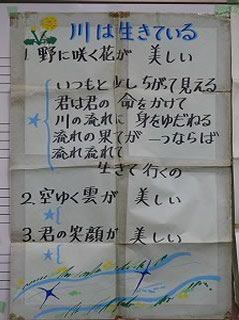 川は生きている
1.野に咲く花が 美しい
いつもと少しちがて見える
君は君の 命をかけて
川の流れに 身をゆだねる
流れの果てが 一つならば
流れ流れて
生きて行くの
2.空ゆく雲が 美しい
*{
3.君の笑顔が 美しい
*{